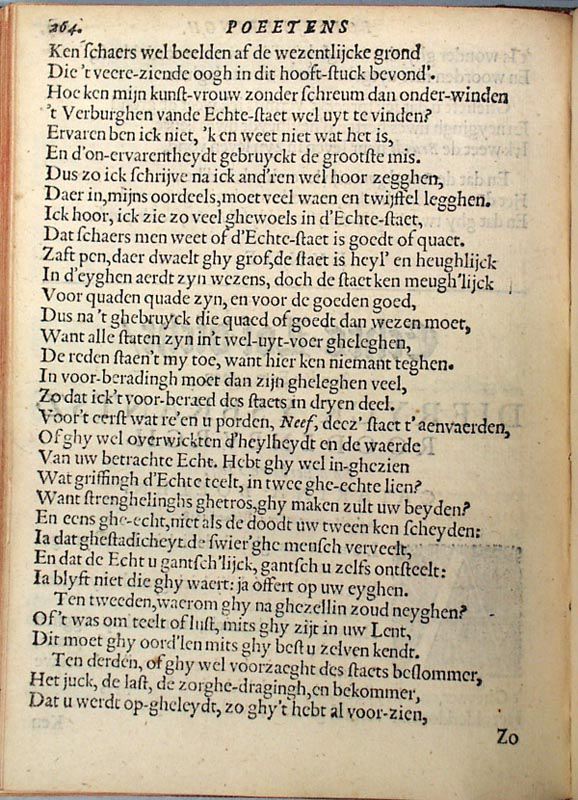 264. POEETENS
Ken schaers wel beelden af de wezentlijcke grond
Die 't veere-ziende oogh in dit hooft-stuck bevond'.
Hoe ken mijn kunst-vrouw zonder schreum dan onder-winden
't Verburghen vande Echte-staet wel uyt te vinden?
Ervaren ben ick niet, 'k en weet niet wat het is,
En d'on-ervarentheydt gebruyckt de grootste mis.
Dus zo ick schrijve na ick and'ren wel hoor zegghen,
Daer in, mijns oordeels, moet veel waen en twijffel legghen.
Ick hoor, ick zie zo veel ghewoels in d'Echte-staet,
Dat schaers men weet of d'Echte-staet is goedt of quaet.
Zaft pen, daer dwaelt ghy grof, de staet is heyl' en heughlijck
In d'eyghen aerdt zyn wezens, doch de staet ken meugh'lijck
Voor quaden quade zyn, en voor de goeden goed,
Dus na 't ghebruyck die quaed of goedt dan wezen moet,
Want alle staten zyn in't wel-uyt-voer gheleghen,
De reden staen't my toe, want hier ken niemant teghen.
In voor-beradingh moet dan zijn gheleghen veel,
Zo dat ick't voor-beraed des staets in dryen deel.
Voor't eerst wat re'en u porden, Neef, deez' staet t'aenvaerden,
Of ghy wel overwickten d'heylheydt en de waerde
Van uw betrachte Echt. Hebt ghy wel in-ghezien
Wat griffingh d'Echte teelt, in twee ghe-echte lien?
Want strenghelinghs ghetros, ghy maken zult uw beyden?
En eens ghe-echt, niet als de doodt uw tween ken scheyden:
Ia dat ghestadicheyt de swier'ghe mensch verveelt,
En dat de Echt u gantsch'lijck, gantsch u zelfs ontsteelt:
Ia blyft niet die ghy waert: ja offert op uw eyghen.
Ten tweeden, waerom ghy na ghezellin zoud neyghen?
Of't was om teelt of lust, mits ghy zijt in uw Lent,
Dit moet ghy oord'len mits ghy best u zelven kendt.
Ten derden, of ghy wel voorzaeght des staets beslommer,
Het juck, de last, de zorghe-dragingh, en bekommer,
Dat u werdt op-gheleydt, zo ghy't hebt al voor-zien,
Zo